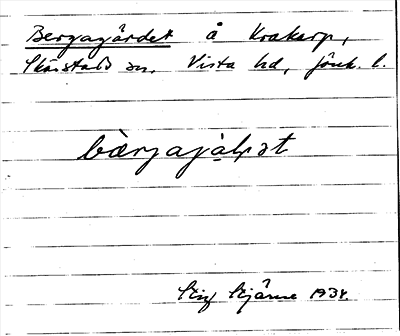 Bergagärdet å Krakarp,
Skärstads sn, Vista hd, Jönk. l.
bærjajal̥ət
Stig Stjärne 1934.